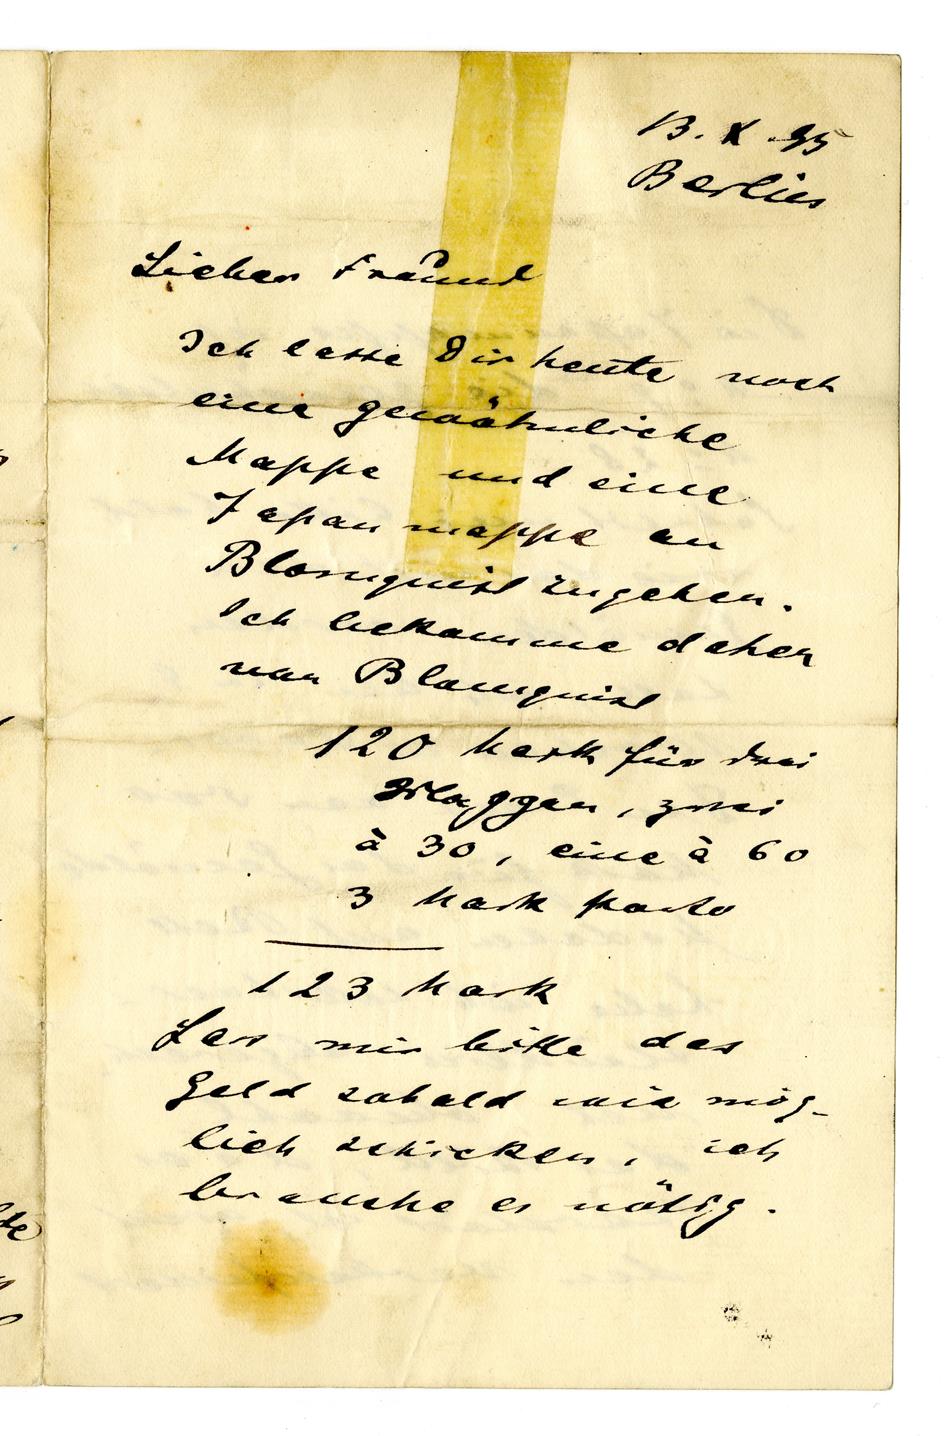 13. X. 95
Berlin
Lieber Fraünd
Ich lasse Dir heute noch
eine gewöähnliche
Mappe und eine
Japanmappe an
Blomquist zugehen.
Ich bekomme daher
von Blomquist
120 Mark für drei
Mappen, zwei
à 30, eine à 60
3 Mark porto
123 Mark
Las mir bitte das
Geld sobald wie mög-
lich schicken, ich
brauche es nötig.